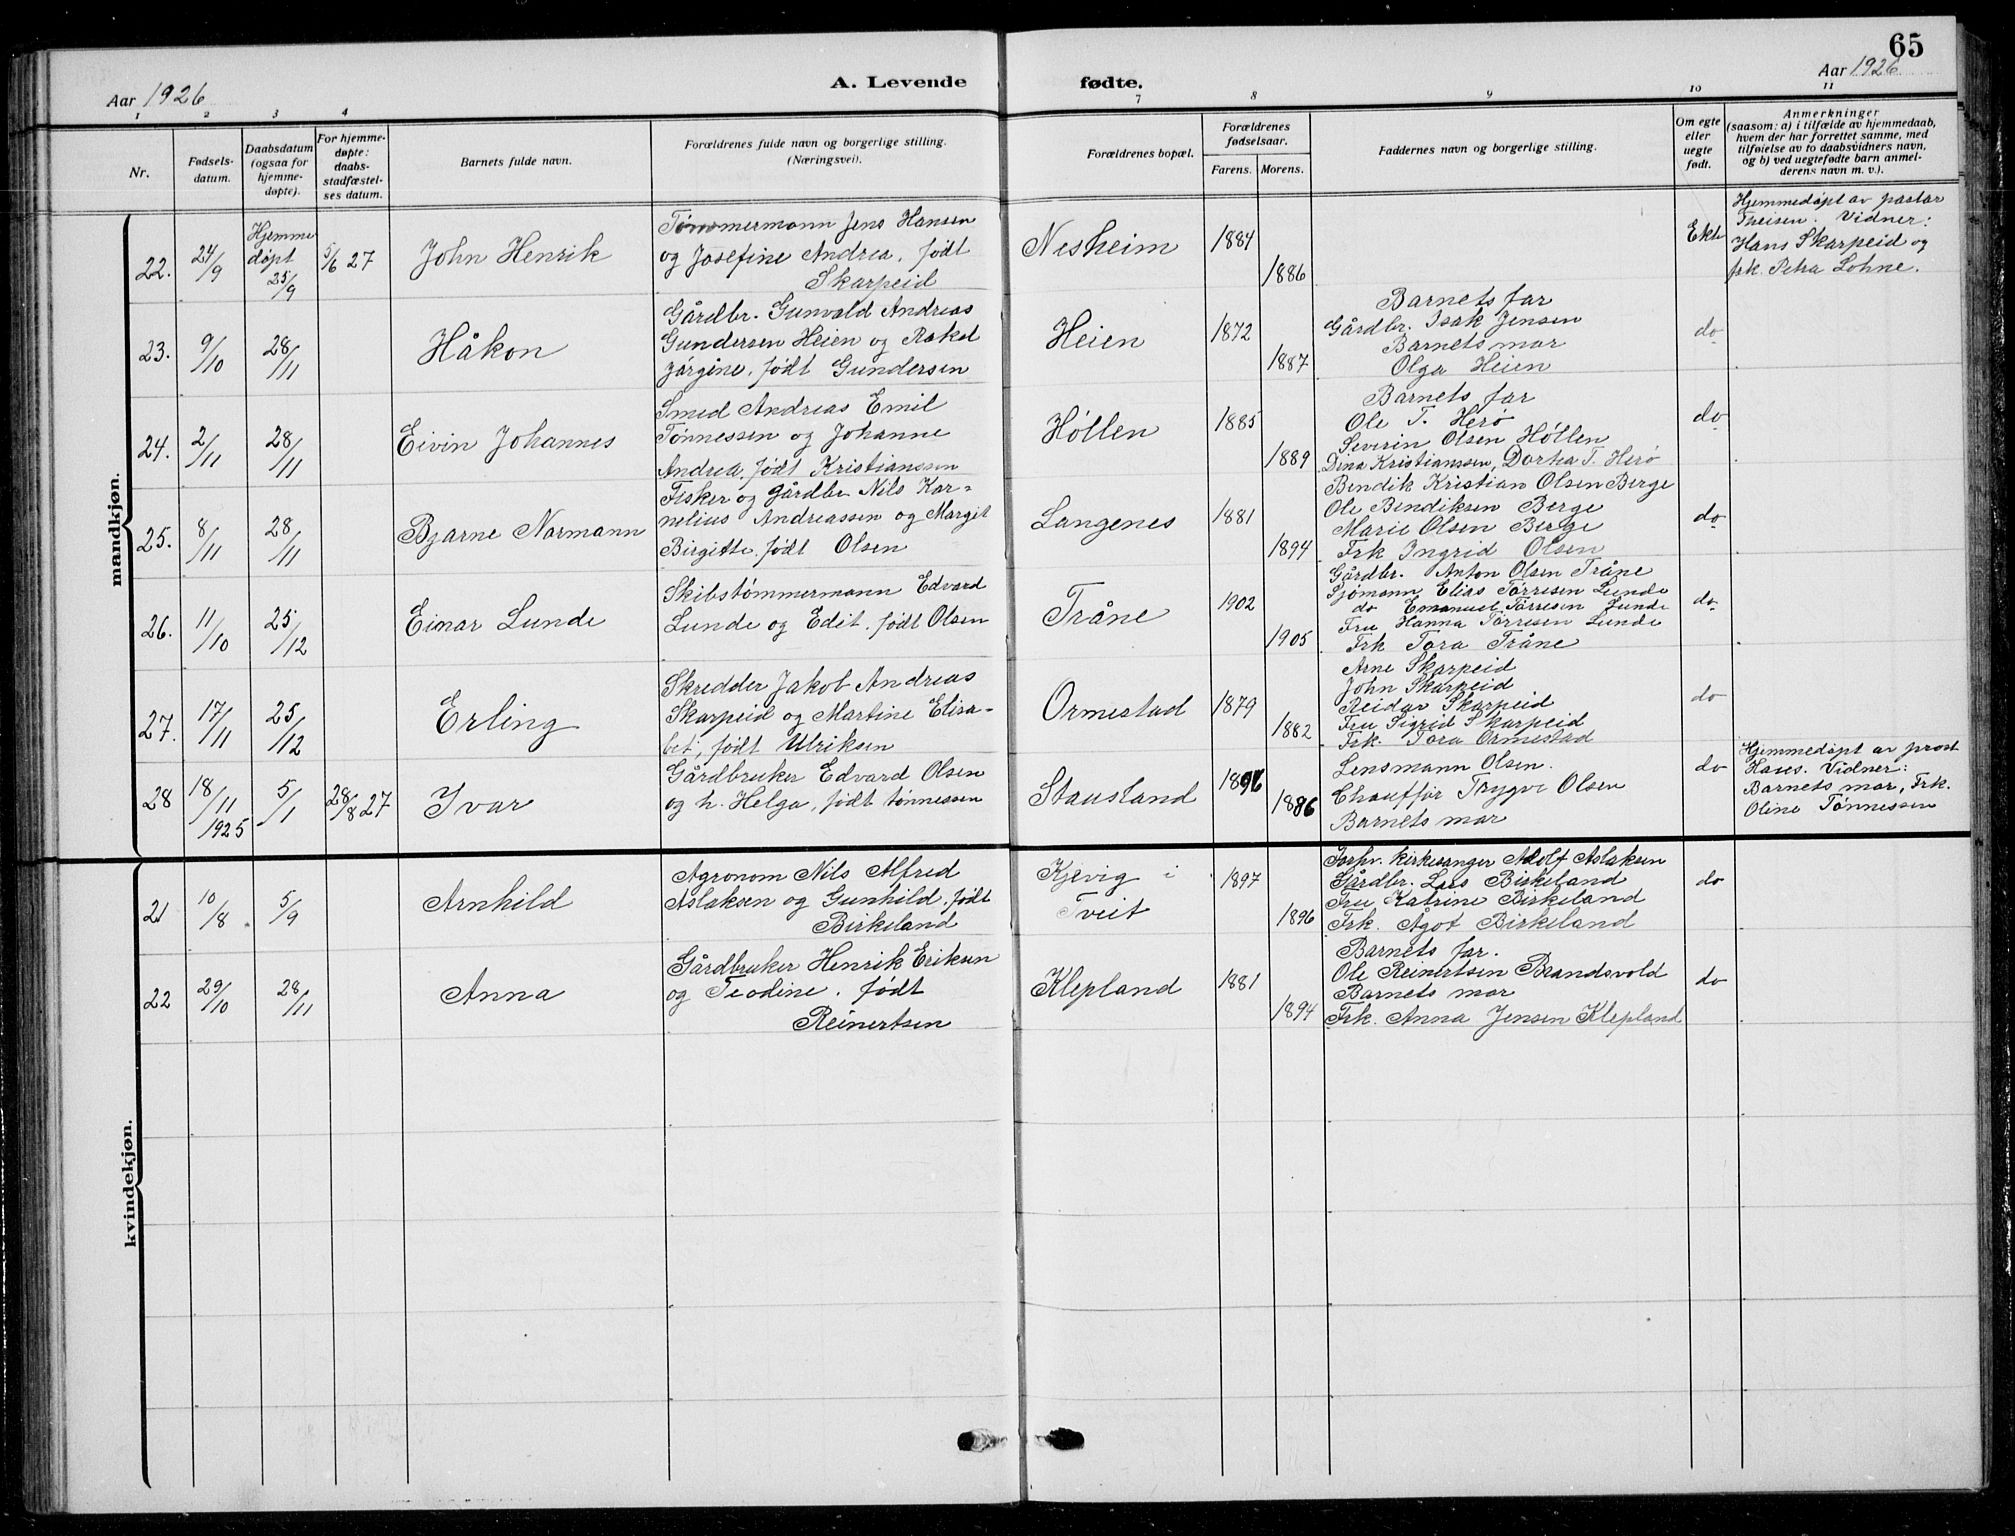 65
Aar 1926
A. Levende fødte.
Aar 1926
1 2 3 4 7 8 9 10 11
Nr.
Fødsels-
datum.
Daabsdatum
(ogsaa for
hjemme-
døpte).
For hjemme-
døpte:
daabs-
stadfæstel-
ses datum.
Barnets fulde navn.
Forældrenes fulde navn og borgerlige stilling.
(Næringsvei).
Forældrenes bopæl.
Forældrenes
fødselsaar.
Farens. Morens.
Faddernes navn og borgerlige stilling.
Om egte
eller
uegte
født.
Anmerkninger
(saasom: a) i tilfælde av hjemmedaab,
hvem der har forrettet samme, med
tilføielse av to daabsvidners navn,
og b) ved uegtefødte barn anmel-
derens navn m. v.).
mandkjøn.
22. 24/9
Hjemme
døpt
25/9
5/6 27
John Henrik
Tømmermann Jens Hansen
og Josefine Andrea, født
Skarpeid
Nesheim
1884
1886
Ekte
Hjemmedøpt av pastor
Theisen. Vidner:
Hans Skarpeid og
frk. Petra Lohne.
23. 9/10 28/11
Håkon
Gårdbr. Gunvald Andreas
Gundersen Heien og Rakel
Jørgine, født Gundersen
Heien
1872
1887
Barnets far
Gårdbr. Isak Jensen
Barnets mor
Olga Heien
do
24. 2/11 28/11
Eivin Johannes
Smed Andreas Emil
Tønnessen og Johanne
Andrea, født Kristianssen
Høllen
1885
1889
Barnets far
Ole T. Herø
Severin Olsen Høllen
Dina Kristianssen, Dorthea T. Herø
do
25. 8/11 28/11
Bjarne Normann
Fisker og gårdbr. Nils Kor-
nelius Andreassen og Margit
Birgitte, født Olsen
Langenes
1881
1894
Bendik Kristian Olsen Berge
Ole Bendiksen Berge
Marie Olsen Berge
Frk Ingrid Olsen
do
26. 11/10 25/12
Einar Lunde
Skibstømmermann Edvard
Lunde og Edit, født Olsen
Tråne
1902
1905
Gårdbr. Anton Olsen Tråne
Sjømann Elias Tørresen Lunde
do Emanuel Tørresen Lunde
Fru Hanna Tørresen Lunde
Frk Tora Tråne
do
27. 17/11 25/12
Erling
Skredder Jakob Andreas
Skarpeid og Martine Elisa-
bet, født Ulriksen
Ormestad
1879
1882
Arne Skarpeid
John Skarpeid
Reidar Skarpeid
Fru Sigrid Skarpeid
Frk. Tora Ormestad
do
28 18/11 1925 5/1 28/8 27
Ivar
Gårdbruker Edvard Olsen
og h. Helga, født tønnessen
Stausland
1896
1886
Lensmann Olsen.
Chauffør Trygve Olsen
Barnets mor
do
Hjemmedøpt av prost
Haus. Vidner:
Barnets mor, Frk.
Oline Tønnessen
kvindekjøn.
21 10/8 5/9
Arnhild
Agronom Nils Alfred
Aslaksen og Gunhild, født
Birkeland
Kjevig i
Tveit
1897
1896
Forhv. kirkesanger Adolf Aslaksen
Gårdbr. Lars Birkeland
Fru Katrine Birkeland
Frk. Ågot Birkeland
do
22 29/10 28/11
Anna
Gårdbruker Henrik Eriksen
og Teodine, født
Reinertsen
Klepland
1881
1894
Barnets far.
Ole Reinertsen Brandsvold
Barnets mor
Frk. Anna Jensen Klepland
do